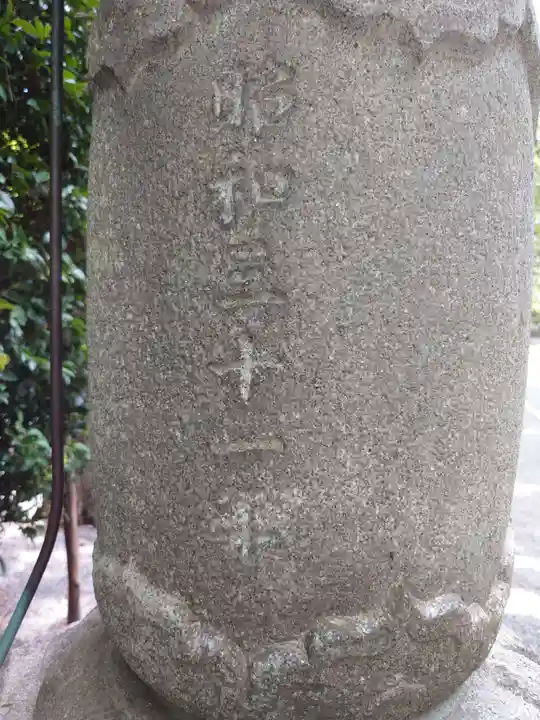 昭和三十一年